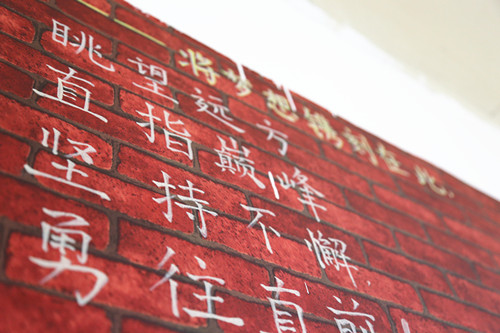 将梦想镌刻至此
眺望远方
直指巅峰
坚持不懈
勇往直前